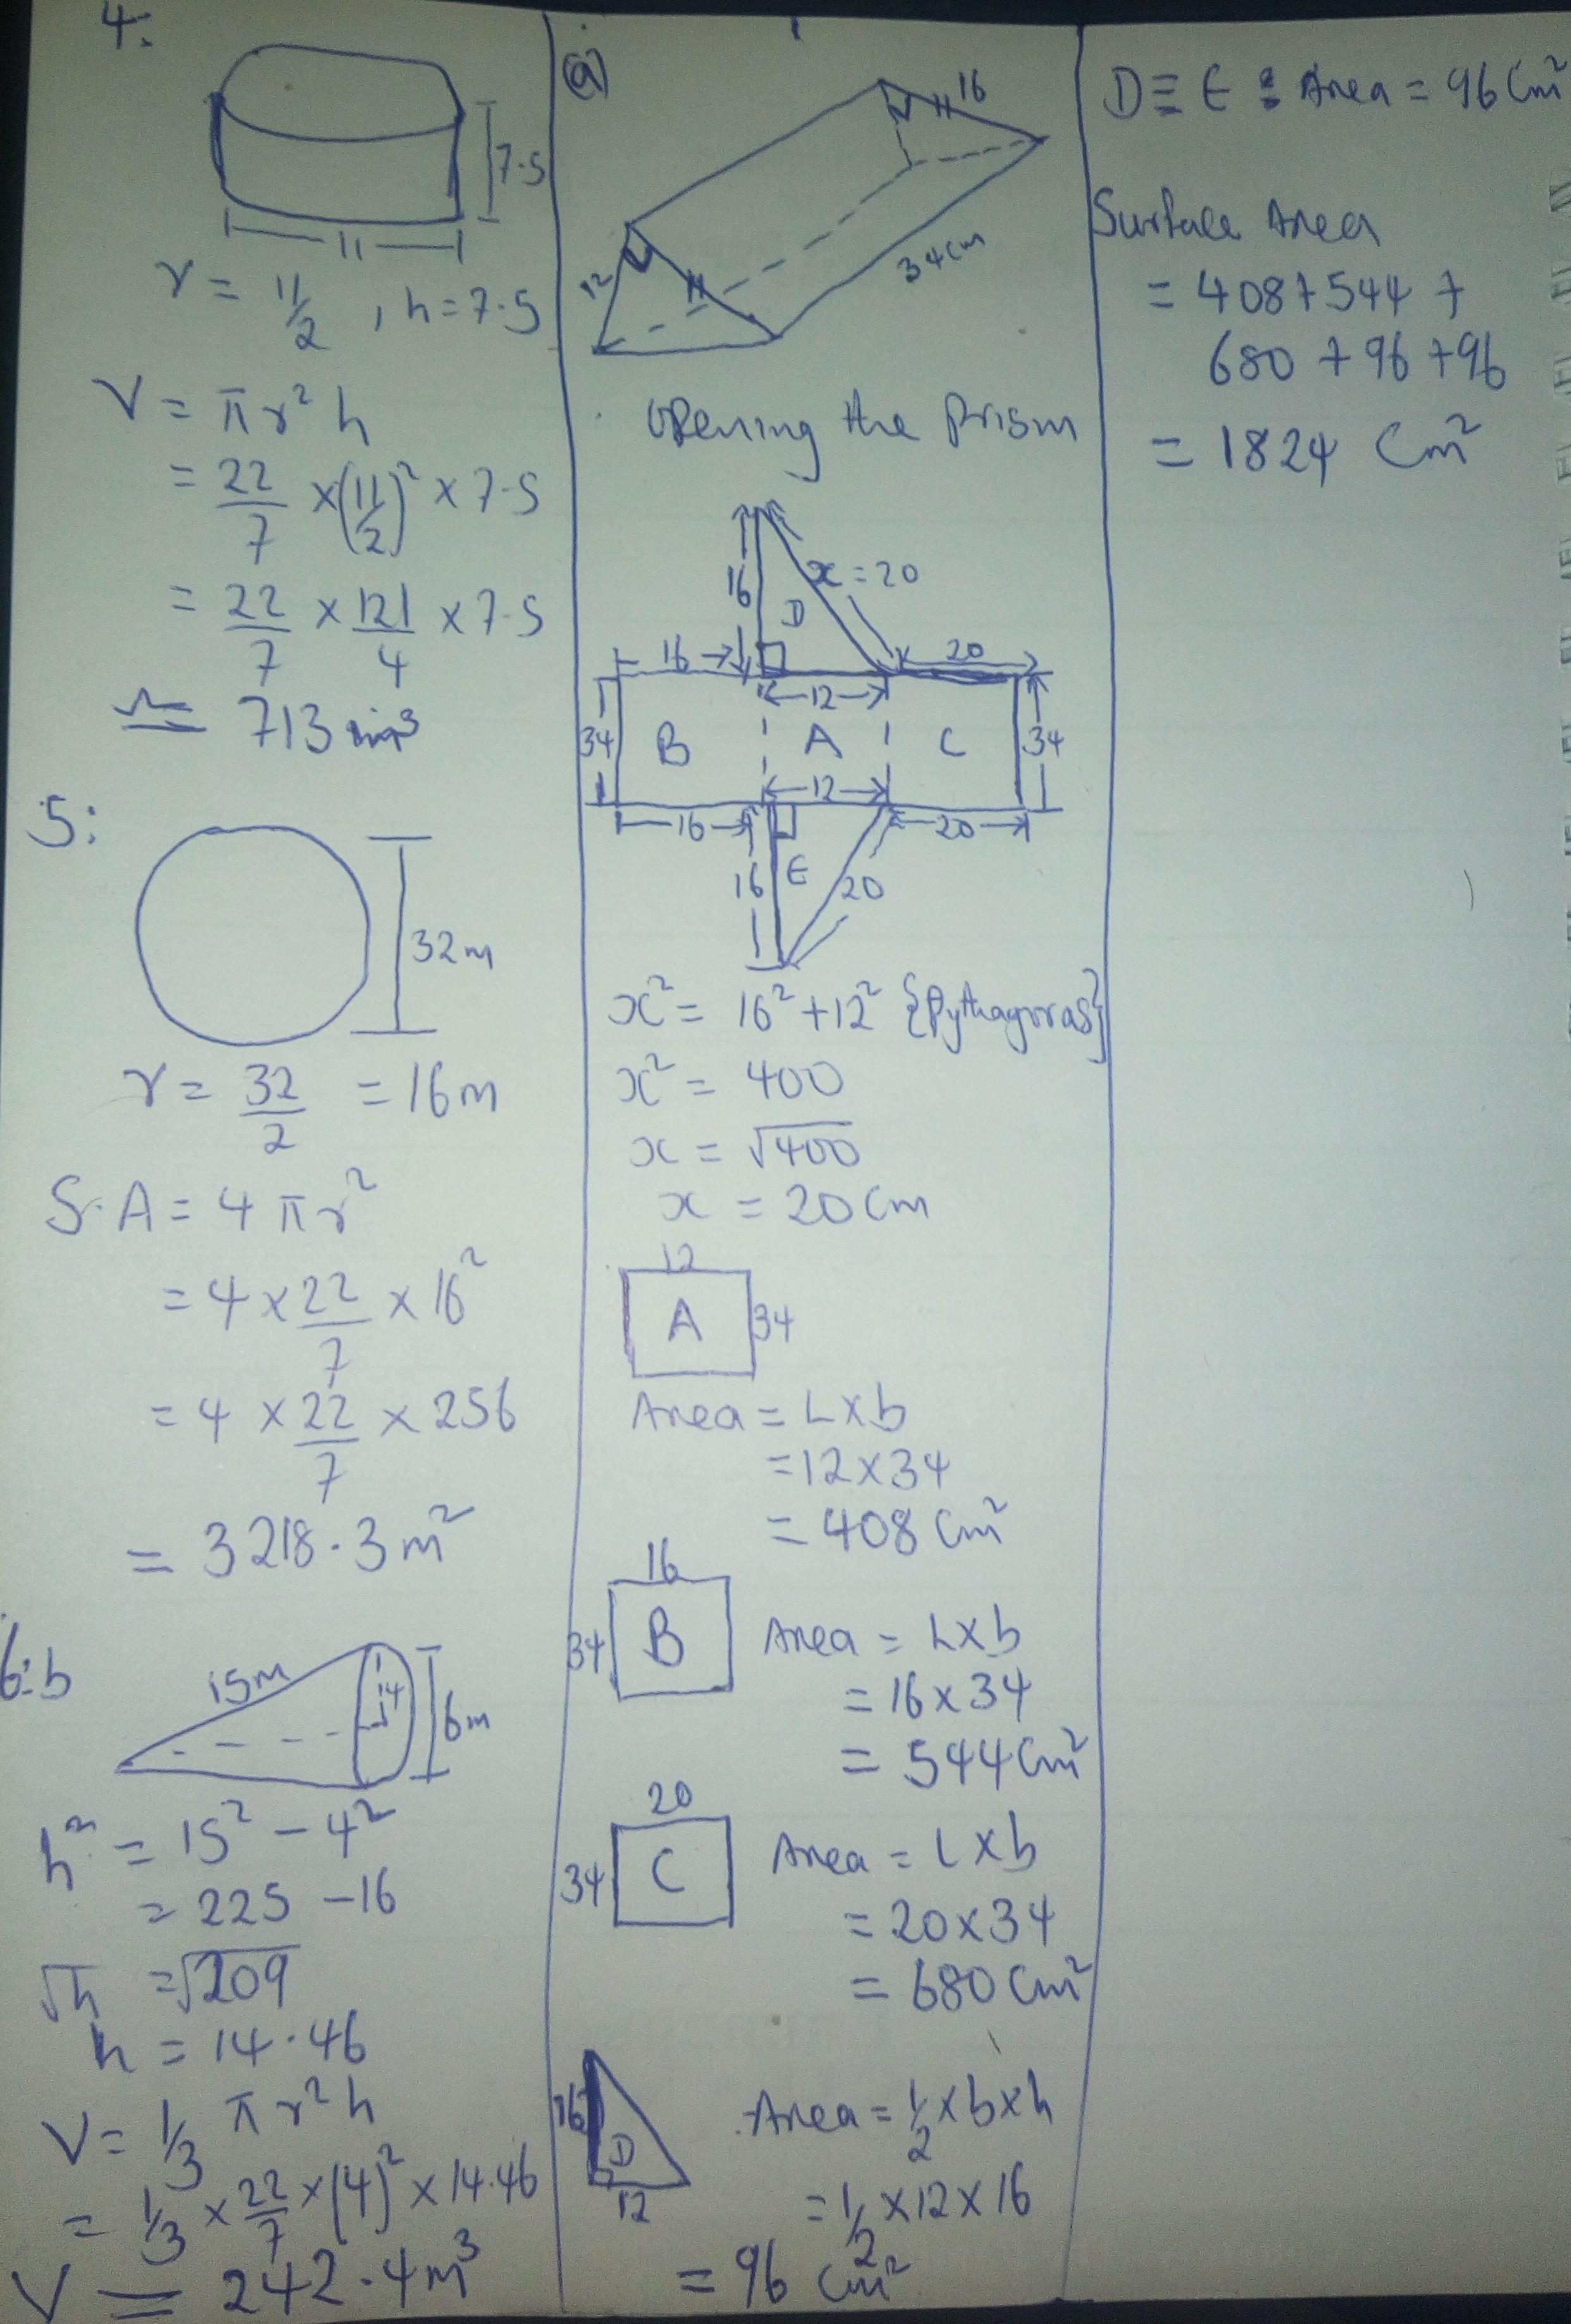 4:
7.5
11
r = 11/2 , h = 7.5
V = πr²h
= 22/7 × (11/2)² × 7.5
= 22/7 × 121/4 × 7.5
≃ 713 in³
5:
32m
r = 32/2 = 16m
S.A = 4πr²
= 4 × 22/7 × 16²
= 4 × 22/7 × 256
= 3218.3 m²
6:b
15m
14
6m
h² = 15² - 4²
= 225 - 16
√h = √209
h = 14.46
V = 1/3 πr²h
= 1/3 × 22/7 × (4)² × 14.46
V = 242.4m³
(a)
16
12
34cm
Opening the prism
16
x = 20
D
16
20
12
34
B
A
C
34
12
16
20
16
E
20
x² = 16² + 12² {Pythagoras}
x² = 400
x = √400
x = 20cm
12
A
34
Area = L×b
= 12×34
= 408 cm²
16
34
B
Area = L×b
= 16×34
= 544cm²
20
34
C
Area = L×b
= 20×34
= 680cm²
16
D
12
Area = 1/2×b×h
= 1/2×12×16
= 96 cm²
D ≡ E : Area = 96cm²
Surface Area
= 408+544+
680+96+96
= 1824 cm²